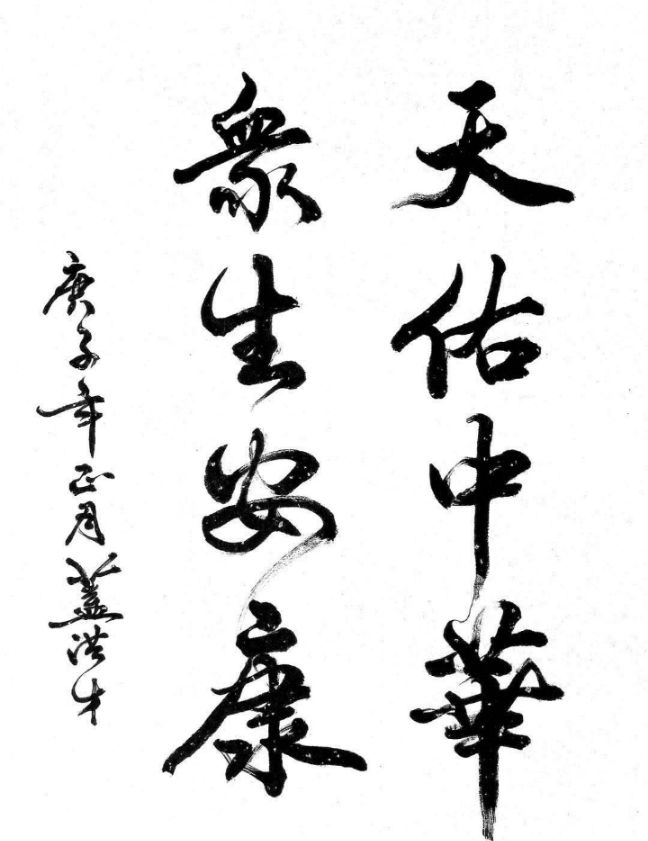 天佑中華
衆生安康
庚子年正月蓋洪才